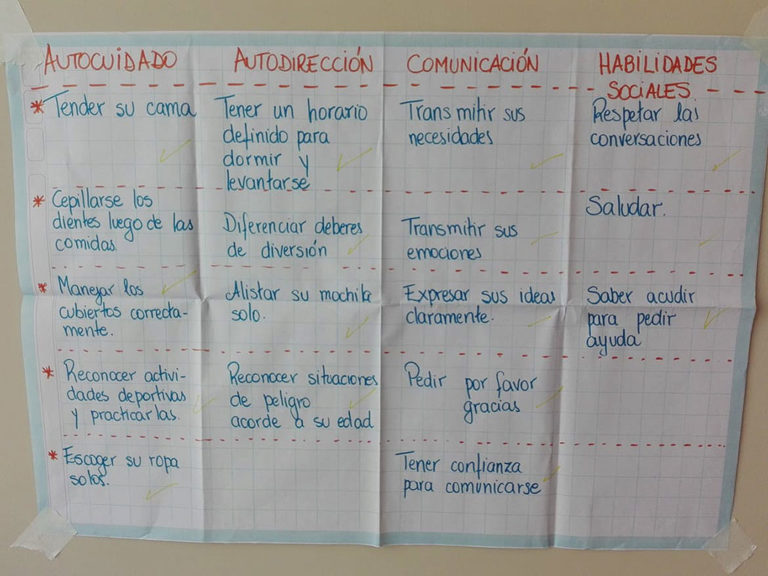 AUTOCUIDADO
* Tender su cama
* Cepillarse los
dientes luego de las
comidas
* Manejar los
cubiertos correcta-
mente.
* Reconocer activi-
dades deportivas
y practicarlas.
* Escoger su ropa
solos.
AUTODIRECCIÓN
Tener un horario
definido para
dormir y
levantarse
Diferenciar deberes
de diversión
Alistar su mochila
solo.
Reconocer situaciones
de peligro
acorde a su edad
COMUNICACIÓN
Transmitir sus
necesidades
Transmitir sus
emociones
Expresar sus ideas
claramente.
Pedir por favor
gracias
Tener confianza
para comunicarse
HABILIDADES
SOCIALES
Respetar las
conversaciones
Saludar.
Saber acudir
para pedir
ayuda